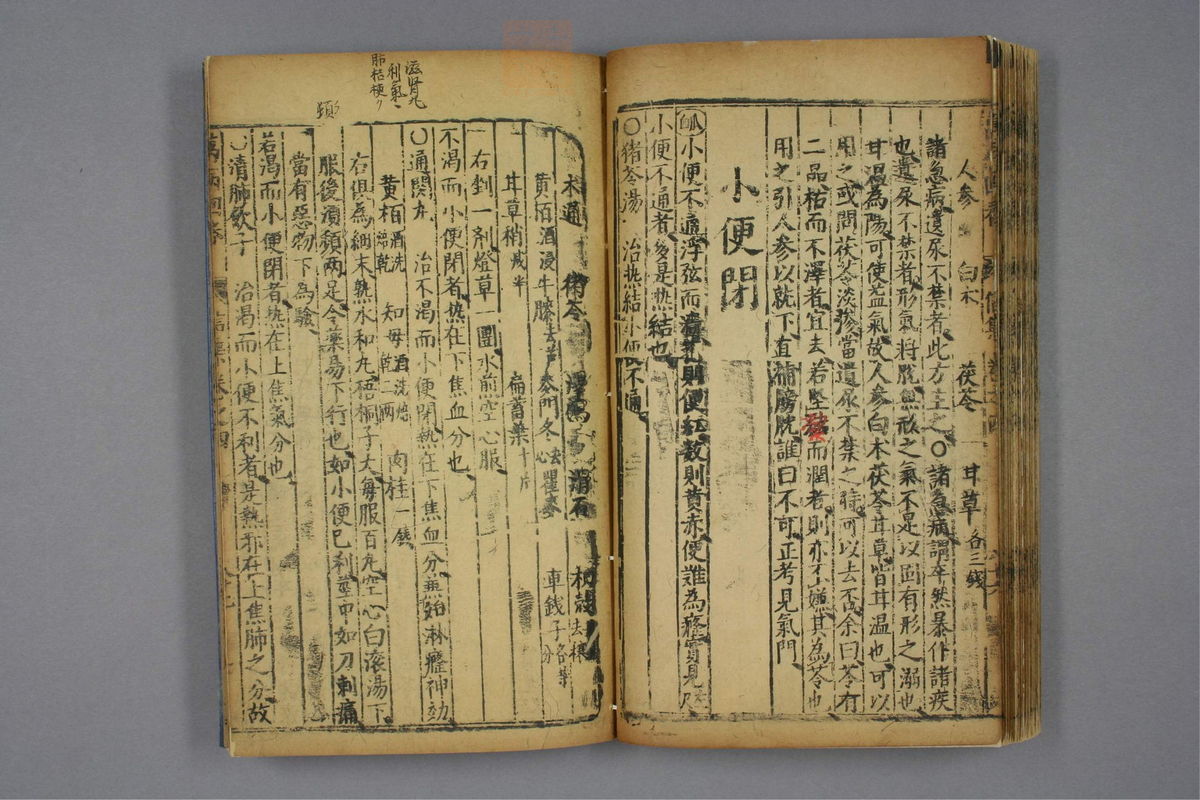 人参 白朮 茯苓 甘草各三錢
諸急病遺尿不禁者此方主之〇諸急病謂卒然暴仆諸疾
也遺尿不禁者形氣將脫無形之氣不足以固有形之溺也
甘溫為陽可使益氣故人参白朮茯苓甘草皆甘溫也可以
用之或問茯苓淡滲當遺尿不禁之時可以去否余曰苓有
二品枯而不澤者宜去若堅而潤者則亦不嫌其為苓也
用之引人参以就下直補膀胱誰曰不可正考見氣門
小便閉
小便不通浮弦而濇芤則便紅数則黄赤便難為癃實見尺
小便不通者多是熱結也
〇猪苓湯 治热結小便不通
木通 猪苓 澤瀉 滑石 枳殼去穣
黄栢酒浸牛膝去芦麥門冬去心瞿麥 車錢子各等分
甘草梢减半 扁蓄葉十片
右剉一劑燈草一團水煎空心服
不渴而小便閉者热在下焦血分也
〇通関丸 治不渴而小便閉热在下焦血分無如淋癃神効
黄栢酒洗焙乾 知毋酒洗焙乾二兩 肉桂一錢
右俱為細末熟水和丸梧桐子大每服百丸空心白滚湯下
服後湏頻兩足令藥易下行也如小便已利莖中如刀刺痛
當有惡物下為驗
若渴而小便閉者热在上焦氣分也
〇清肺飲子 治渴而小便不利者是热邪在上焦肺之分故
滋肾丸
利氣
肺桔梗